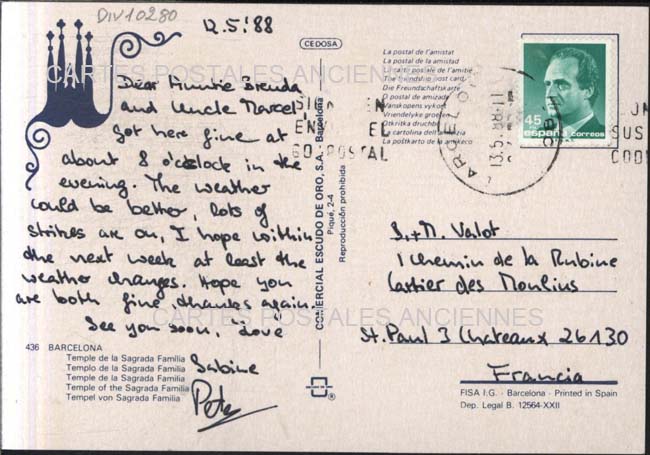 DIV10280
12.5.'88
Dear Auntie Brenda
and Uncle Marcel,
Got here fine at
about 8 o'clock in the
evening. The weather
could be better, lots of
strikes are on, I hope within
the next week at least the
weather changes. Hope you
are both fine, thanks again.
See you soon, Love
Sabine
Pete
436 BARCELONA
Temple de la Sagrada Família
Templo de la Sagrada Familia
Temple de la Sagrada Familia
Temple of the Sagrada Familia
Tempel von Sagrada Familia
CEDOSA
COMERCIAL ESCUDO DE ORO, S.A. Barcelona
Piqué, 2-4
Reproducción prohibida
La postal de l'amistat
La postal de la amistad
La carte postale de l'amitié
The friendship post card
Die Freundschaftskarte
O postal de amizade
Vanskopens vykort
Vriendelyke groet
Otkritka druchbi
La cartolina dell'amicizia
La postkarto de la amikeco
45
españa correos
13.5.88
B.+M. Valot
1 Chemin de la Rubine
Cartier des Moulins
St. Paul 3 Chateaux 26130
Francia
FISA I.G. - Barcelona - Printed in Spain
Dep. Legal B. 12564-XXII
CARTES POSTALES ANCIENNES
CARTES POSTALES ANCIENNES